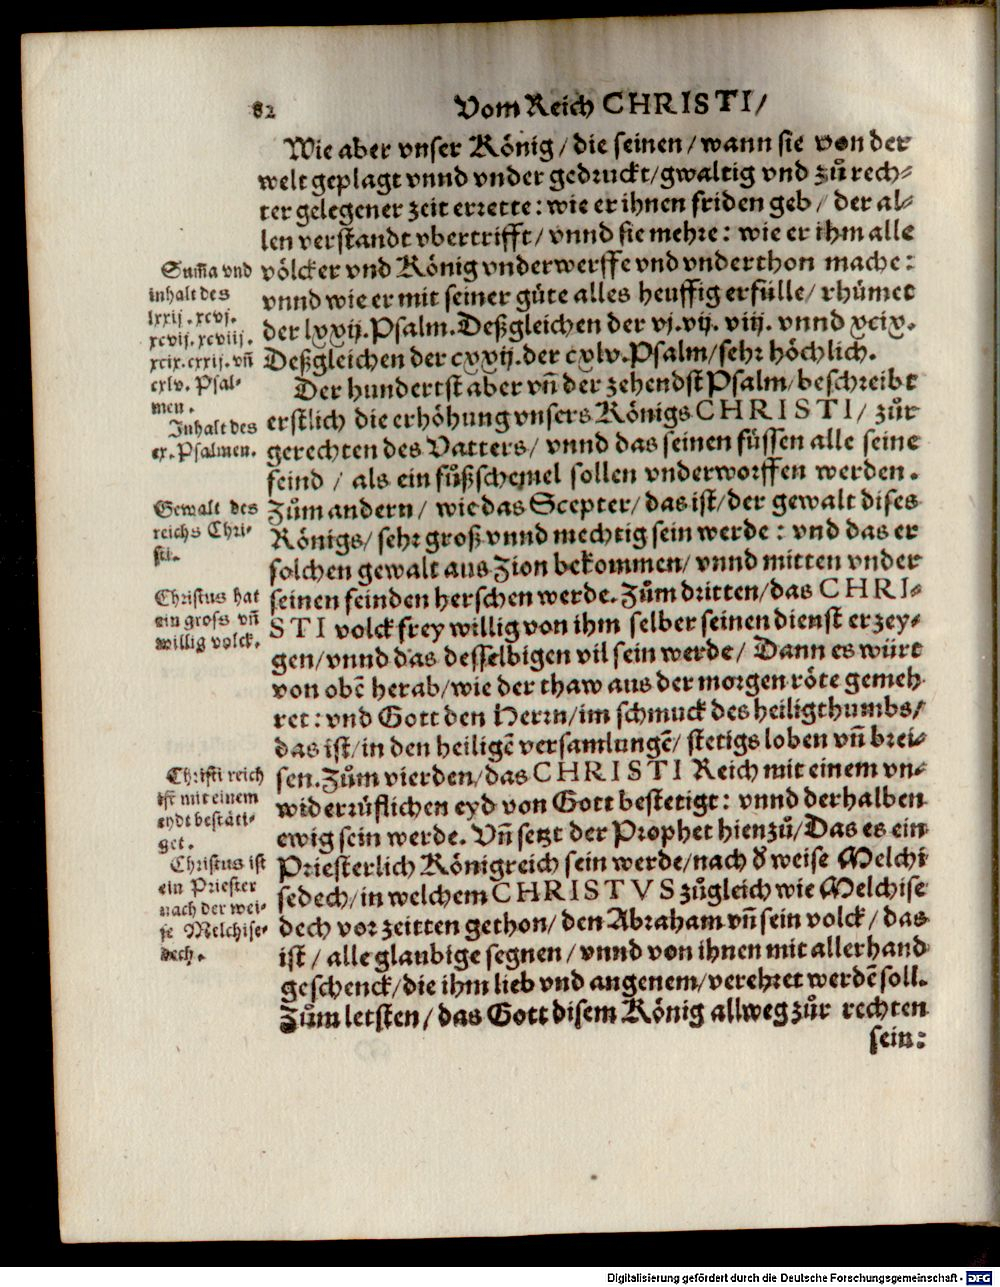 82
Vom Reich CHRISTI/
Wie aber vnser König/ die seinen/ wann sie von der
welt geplagt vnnd vnder gedruckt/ gwaltig vnd zů rech-
ter gelegener zeit errette: wie er ihnen friden geb/ der al-
len verstandt vbertrifft/ vnnd sie mehre: wie er ihm alle
völcker vnd König vnderwerffe vnd vnderthon mache:
vnnd wie er mit seiner güte alles heuffig erfülle/ rhümet
der lxxij. Psalm. Deßgleichen der vj. vij. viij. vnnd xcix.
Deßgleichen der cxxij. der cxlv. Psalm/ sehr höchlich.
Summa vnd
inhalt des
lxxij. xcvj.
xcvij. xcviij.
xcix. cxxij. vñ
cxlv. Psal-
men.
Der hundertst aber vñ der zehendst Psalm/ beschreibt
erstlich die erhöhung vnsers Königs CHRISTI/ zůr
gerechten des Vatters/ vnnd das seinen füssen alle seine
feind/ als ein fůßschemel sollen vnderworffen werden.
Inhalt des
cx. Psalmen.
Zům andern/ wie das Scepter/ das ist/ der gewalt dises
Königs/ sehr groß vnnd mechtig sein werde: vnd das er
solchen gewalt aus Zion bekommen/ vnnd mitten vnder
Gewalt des
reichs Chri-
sti.
seinen feinden herschen werde. Zům dritten/ das CHRI-
STI volck frey willig von ihm selber seinen dienst erzey-
gen/ vnnd das desselbigen vil sein werde/ Dann es würt
von obē herab/ wie der thaw aus der morgen röte gemeh
ret: vnd Gott den Herrn/ im schmuck des heiligthumbs/
das ist/ in den heiligē versamlungē/ stetigs loben vñ brei-
Christus hat
ein gross vñ
willig volck.
sen. Zům vierden/ das CHRISTI Reich mit einem vn-
widerrůflichen eyd von Gott bestetigt: vnnd derhalben
ewig sein werde. Vñ setzt der Prophet hienzů/ Das es ein
Christi reich
ist mit einem
eydt bestäti-
get.
Priesterlich Königreich sein werde/ nach d̕ weise Melchi
sedech/ in welchem CHRISTVS zůgleich wie Melchise
dech vor zeitten gethon/ den Abraham vñ sein volck/ das
ist/ alle glaubige segnen/ vnnd von ihnen mit allerhand
geschenck/ die ihm lieb vnd angenem/ verehret werdē soll.
Christus ist
ein Priester
nach der wei-
se Melchise-
dech.
Zům letsten/ das Gott disem König allweg zůr rechten
sein:
Digitalisierung gefördert durch die Deutsche Forschungsgemeinschaft - DFG